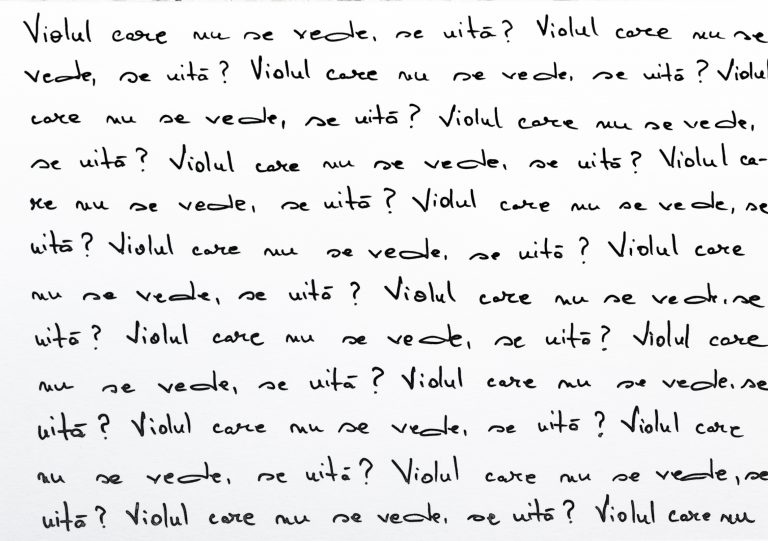 Violul care nu se vede, se uită? Violul care nu se
vede, se uită? Violul care nu se vede, se uită? Violul
care nu se vede, se uită? Violul care nu se vede,
se uită? Violul care nu se vede, se uită? Violul ca-
re nu se vede, se uită? Violul care nu se vede, se
uită? Violul care nu se vede, se uită? Violul care
nu se vede, se uită? Violul care nu se vede, se
uită? Violul care nu se vede, se uită? Violul care
nu se vede, se uită? Violul care nu se vede, se
uită? Violul care nu se vede, se uită? Violul care
nu se vede, se uită? Violul care nu se vede, se
uită? Violul care nu se vede, se uită? Violul care nu